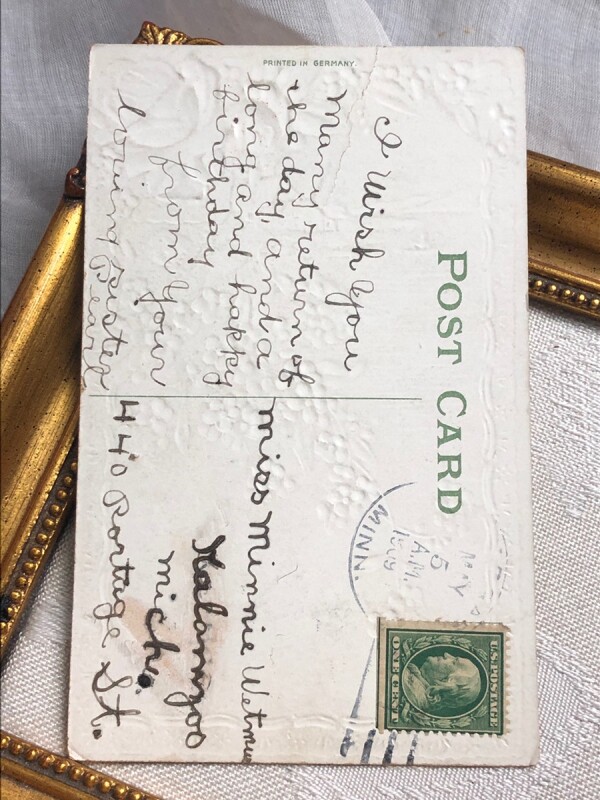 PRINTED IN GERMANY.
POST CARD
I Wish You
Many return of
the day and a
long and happy
birthday
from your
loving sister
Pearl
MINN.
MAY
5
A.M.
U.S. POSTAGE
ONE CENT
Miss Minnie
Kalamazoo
Mich.
440 Portage St.